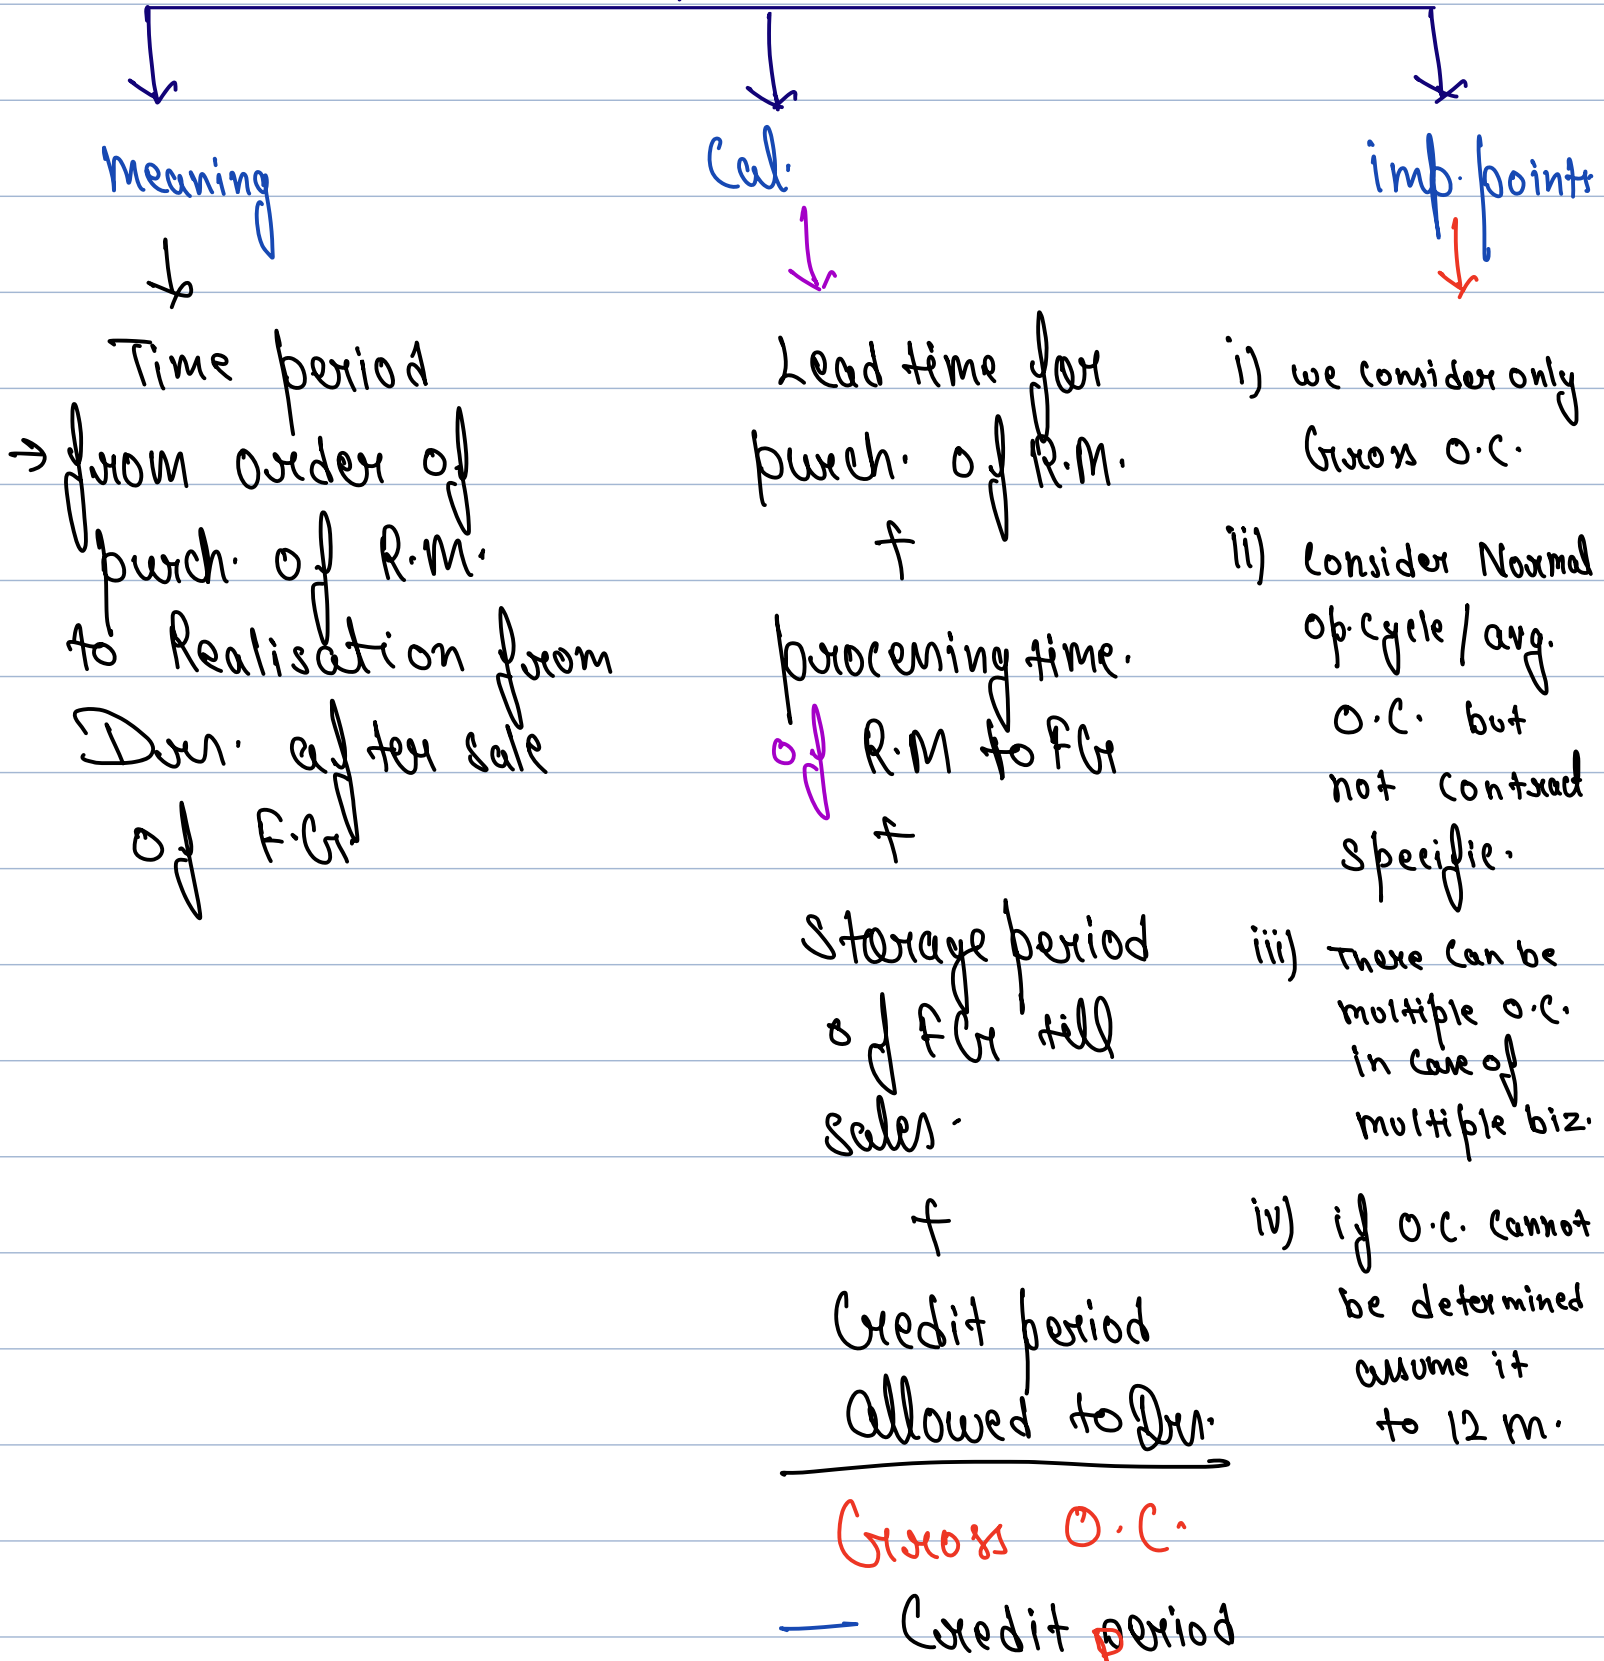 Meaning
Time period
→ from order of
purch. of R.M.
to Realisation from
Drs. after sale
of F.G
Cal.
Lead time for
purch. of R.M.
+
processing time.
of R.M to FG
+
Storage period
of FG till
sales.
+
Credit period
allowed to Drs.
Gross O.C.
— Credit period
imp. points
i) we consider only
Gross O.C.
ii) Consider Normal
op. cycle / avg.
O.C. but
not contract
specific.
iii) There can be
multiple O.C.
in case of
multiple biz.
iv) if O.C. cannot
be determined
assume it
to 12 m.